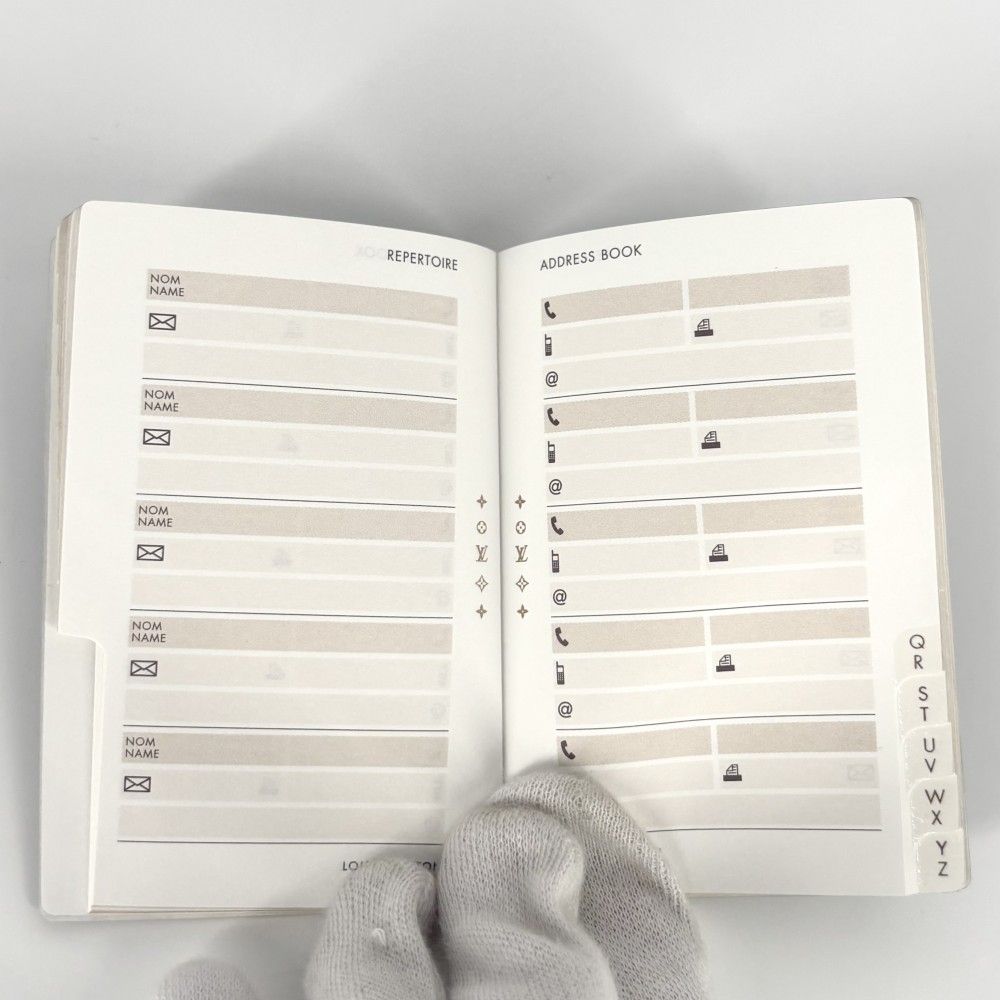 REPERTOIRE
NOM
NAME
NOM
NAME
NOM
NAME
NOM
NAME
NOM
NAME
LV
ADDRESS BOOK
@
@
@
@
LV
Q
R
S
T
U
V
W
X
Y
Z